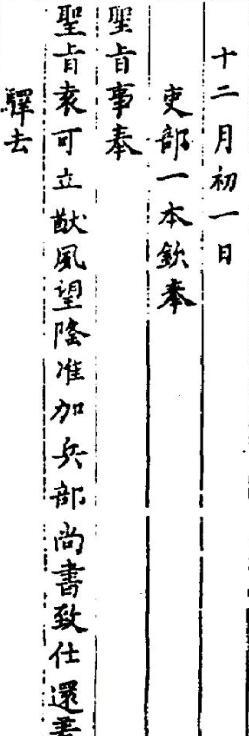 十二月初一日
吏部一本欽奉
聖旨事奉
聖旨袁可立猷風望隆准加兵部尚書致仕還着
驛去